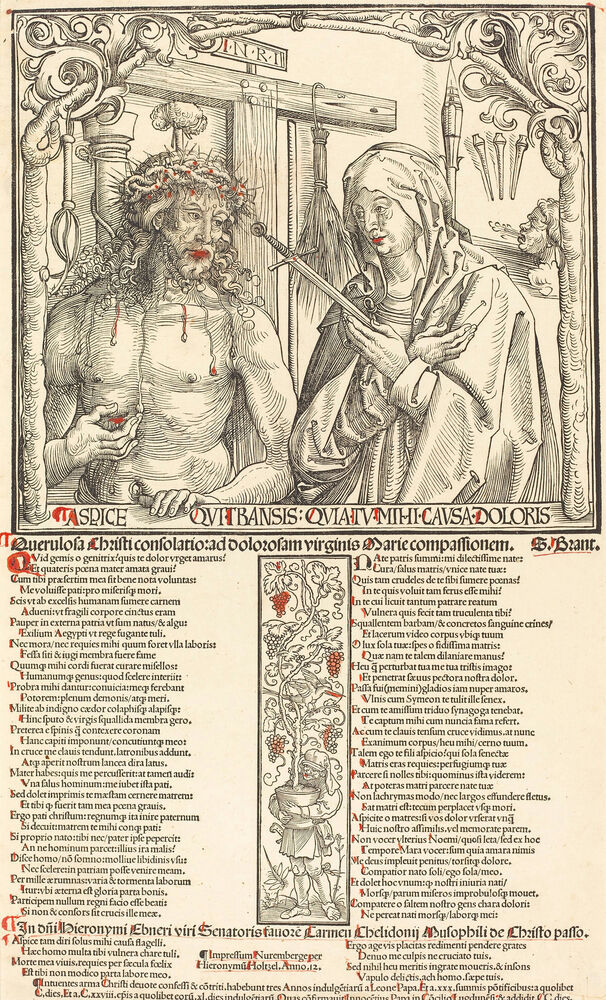 I·N·R·I
ASPICE QVI TRANSIS: QVIA TV MIHI CAVSA DOLORIS
Querulosa Christi consolatio: ad dolorosam virginis Marie compassionem. S. Brant.
Quid gemis o genitrix: quis te dolor vrget amarus?
Et quateris pœna mater amata graui?
Cum tibi præsertim mea sit bene nota voluntas:
Me voluisse pati: pro miserisq̃ mori.
Scis vt ab excelsis humanam sumere carnem
Adueni: vt fragili corpore cinctus eram
Pauper in externa patria vt sum natus/& algu:
Exilium Aegypti vt rege fugante tuli.
Nec mora/nec requies mihi quum foret vlla laboris:
Fessa siti & iugi membra fuere fame
Quumq̃ mihi cordi fuerat curare misellos:
Humanumq̃ genus: quod scelere interiit:
Probra mihi dantur: conuicia: meq̃ ferebant
Potorem: plenum demonis/atq̃ meri.
Milite ab indigno cædor colaphisq̃ alapisq̃:
Hinc sputo & virgis squallida membra gero.
Preterea e spinis q̃ contexere coronam
Hanc capiti imponunt/concutiuntq̃ meo:
In cruce me clauis tendunt. latronibus addunt.
Atq̃ aperit nostrum lancea dira latus.
Mater habes: quis me percusserit: at tamen audi:
Vna salus hominum: me iubet ista pati.
Sed dolet imprimis te mæstam cernere matrem:
Et tibi q̃ fuerit tam mea pœna grauis.
Ergo pati christum: regnumq̃ ita inire paternum
Si decuit: matrem te mihi conq̃ pati:
Si proprio nato: tibi nec/pater ipse pepercit:
An ne hominum parcet: illius ira malis?
Disce homo/nõ somno: molliue libidinis vsu:
Nec scelere: in patriam posse venire meam.
Per mille ærumnas: varia & tormenta laborum
Itur: vbi æterna est gloria parta bonis.
Participem nullum regni facio esse beati:
Si non & consors sit crucis ille meæ.
Nate patris summi: mi dilectissime nate:
Cura/salus/matris/vnice nate tuæ:
Quis tam crudeles de te sibi sumere pœnas!
In te quis voluit tam ferus esse mihi?
In te cui licuit tantum patrare reatum
Vulnera quis fecit tam truculenta tibi?
Squallentem barbam/& concretos sanguine crines/
Et lacerum video corpus vbiq̃ tuum
O lux sola tuæ: spes o fidissima matris:
Quæ nam te talem dilaniare manus?
Heu q̃ perturbat tua me tua tristis imago:
Et penetrat sæuus pectora nostra dolor.
Passa fui (memini) gladios iam nuper amaros.
Vlnis cum Symeon te tulit ille senex.
Et cum te amissum triduo synagoga tenebat.
Te captum mihi cum nuncia fama refert.
Ac cum te clauis tensum cruce vidimus. at nunc
Exanimum corpus/heu mihi/cerno tuum.
Talem ego te fili aspicio? qui sola senectæ
Matris eras requies: perfugiumq̃ tuæ
Parcere si nolles tibi: quominus ista viderem:
At poteras matri parcere nate tuæ
Non lachrymas modo/nec largos effundere fletus.
Sat matri est: tecum perplacet vsq̃ mori.
Aspicite o matres: si vos dolor vrserat vnq̃
Huic nostro assimilis. vel memorate parem.
Non vocer vlterius Noemi/quosi leta/sed ex hoc
Tempore Mara vocer: sum quia amara nimis
Me deus impleuit penitus/torsitq̃ dolore.
Compatior nato soli/ego sola meo.
Et dolet hoc vnum: q̃ nostri iniuria nati/
Morsq̃/parum miseros improbulosq̃ mouet.
Compatere o saltem nostro gens chara dolori:
Ne pereat nati morsq̃/laborq̃ mei:
In dñi Hieronymi Ebneri viri Senatoris fauorẽ Carmen Chelidonij Musophili de Christo passo.
Aspice tam diri solus mihi causa flagelli.
Hæc homo multa tibi vulnera chare tuli.
Morte mea viuus. requies per sæcula fœlix
Est tibi non modico parta labore meo.
Impressum Nurembergę per
Hieronymũ Holtzel. Anno. 12.
Ergo age vis placitas redimenti pendere grates
Denuo me culpis ne cruciato tuis.
Sed nihil heu meritis ingrate moueris, & insons
Vapulo delictis, ach homo. sæpe tuis.
Intuentes arma Christi deuote confessi & cõtriti. habebunt tres Annos indulgẽtiarũ a Leone Papa. Et a. xxx. summis põtificibus: a quolibet
C. dies. Et a. C. xxviii. ep̃is a quolibet eorũ. xl. dies indulgẽtiarũ. Quas cõfirmauit Innocẽtius Papa in Cõcilio